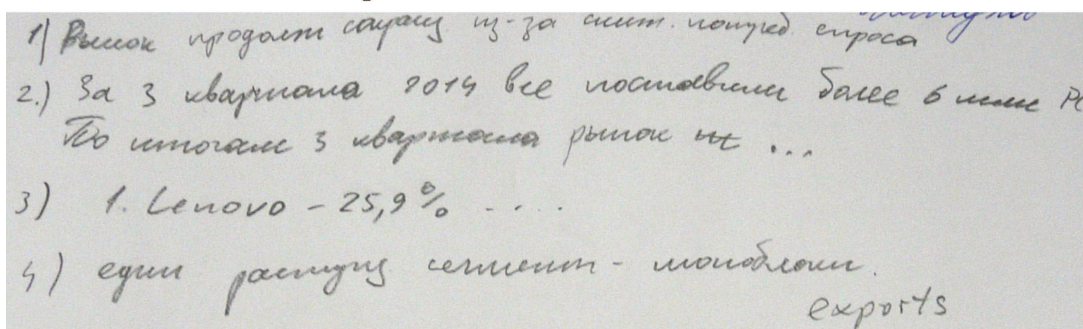 1) Рынок продолж сокращ из-за сниж. потреб. спроса
2.) За 3 квартала 2014 все поставили более 6 млн PC
По итогам 3 квартала рынок ...
3) 1. Lenovo - 25,9% ....
4) един растущ сегмент - моноблоки.
exports